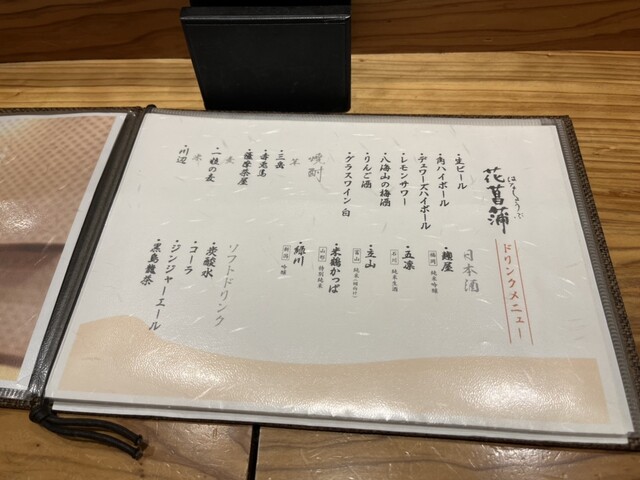 はなしょうぶ
花菖蒲
ドリンクメニュー
・生ビール
・角ハイボール
・デュワーズハイボール
・レモンサワー
・八海山の梅酒
・りんご酒
・グラスワイン 白
焼酎
芋
・三岳
・赤兎馬
・薩摩茶屋
麦
・一粒の麦
米
・川辺
日本酒
・麹屋
純米吟醸
・五凛
石川 純米生酒
・立山
富山
・米鶴かっぱ
山形 特別純米
・緑川
新潟 吟醸
ソフトドリンク
・炭酸水
・コーラ
・ジンジャーエール
・黒烏龍茶